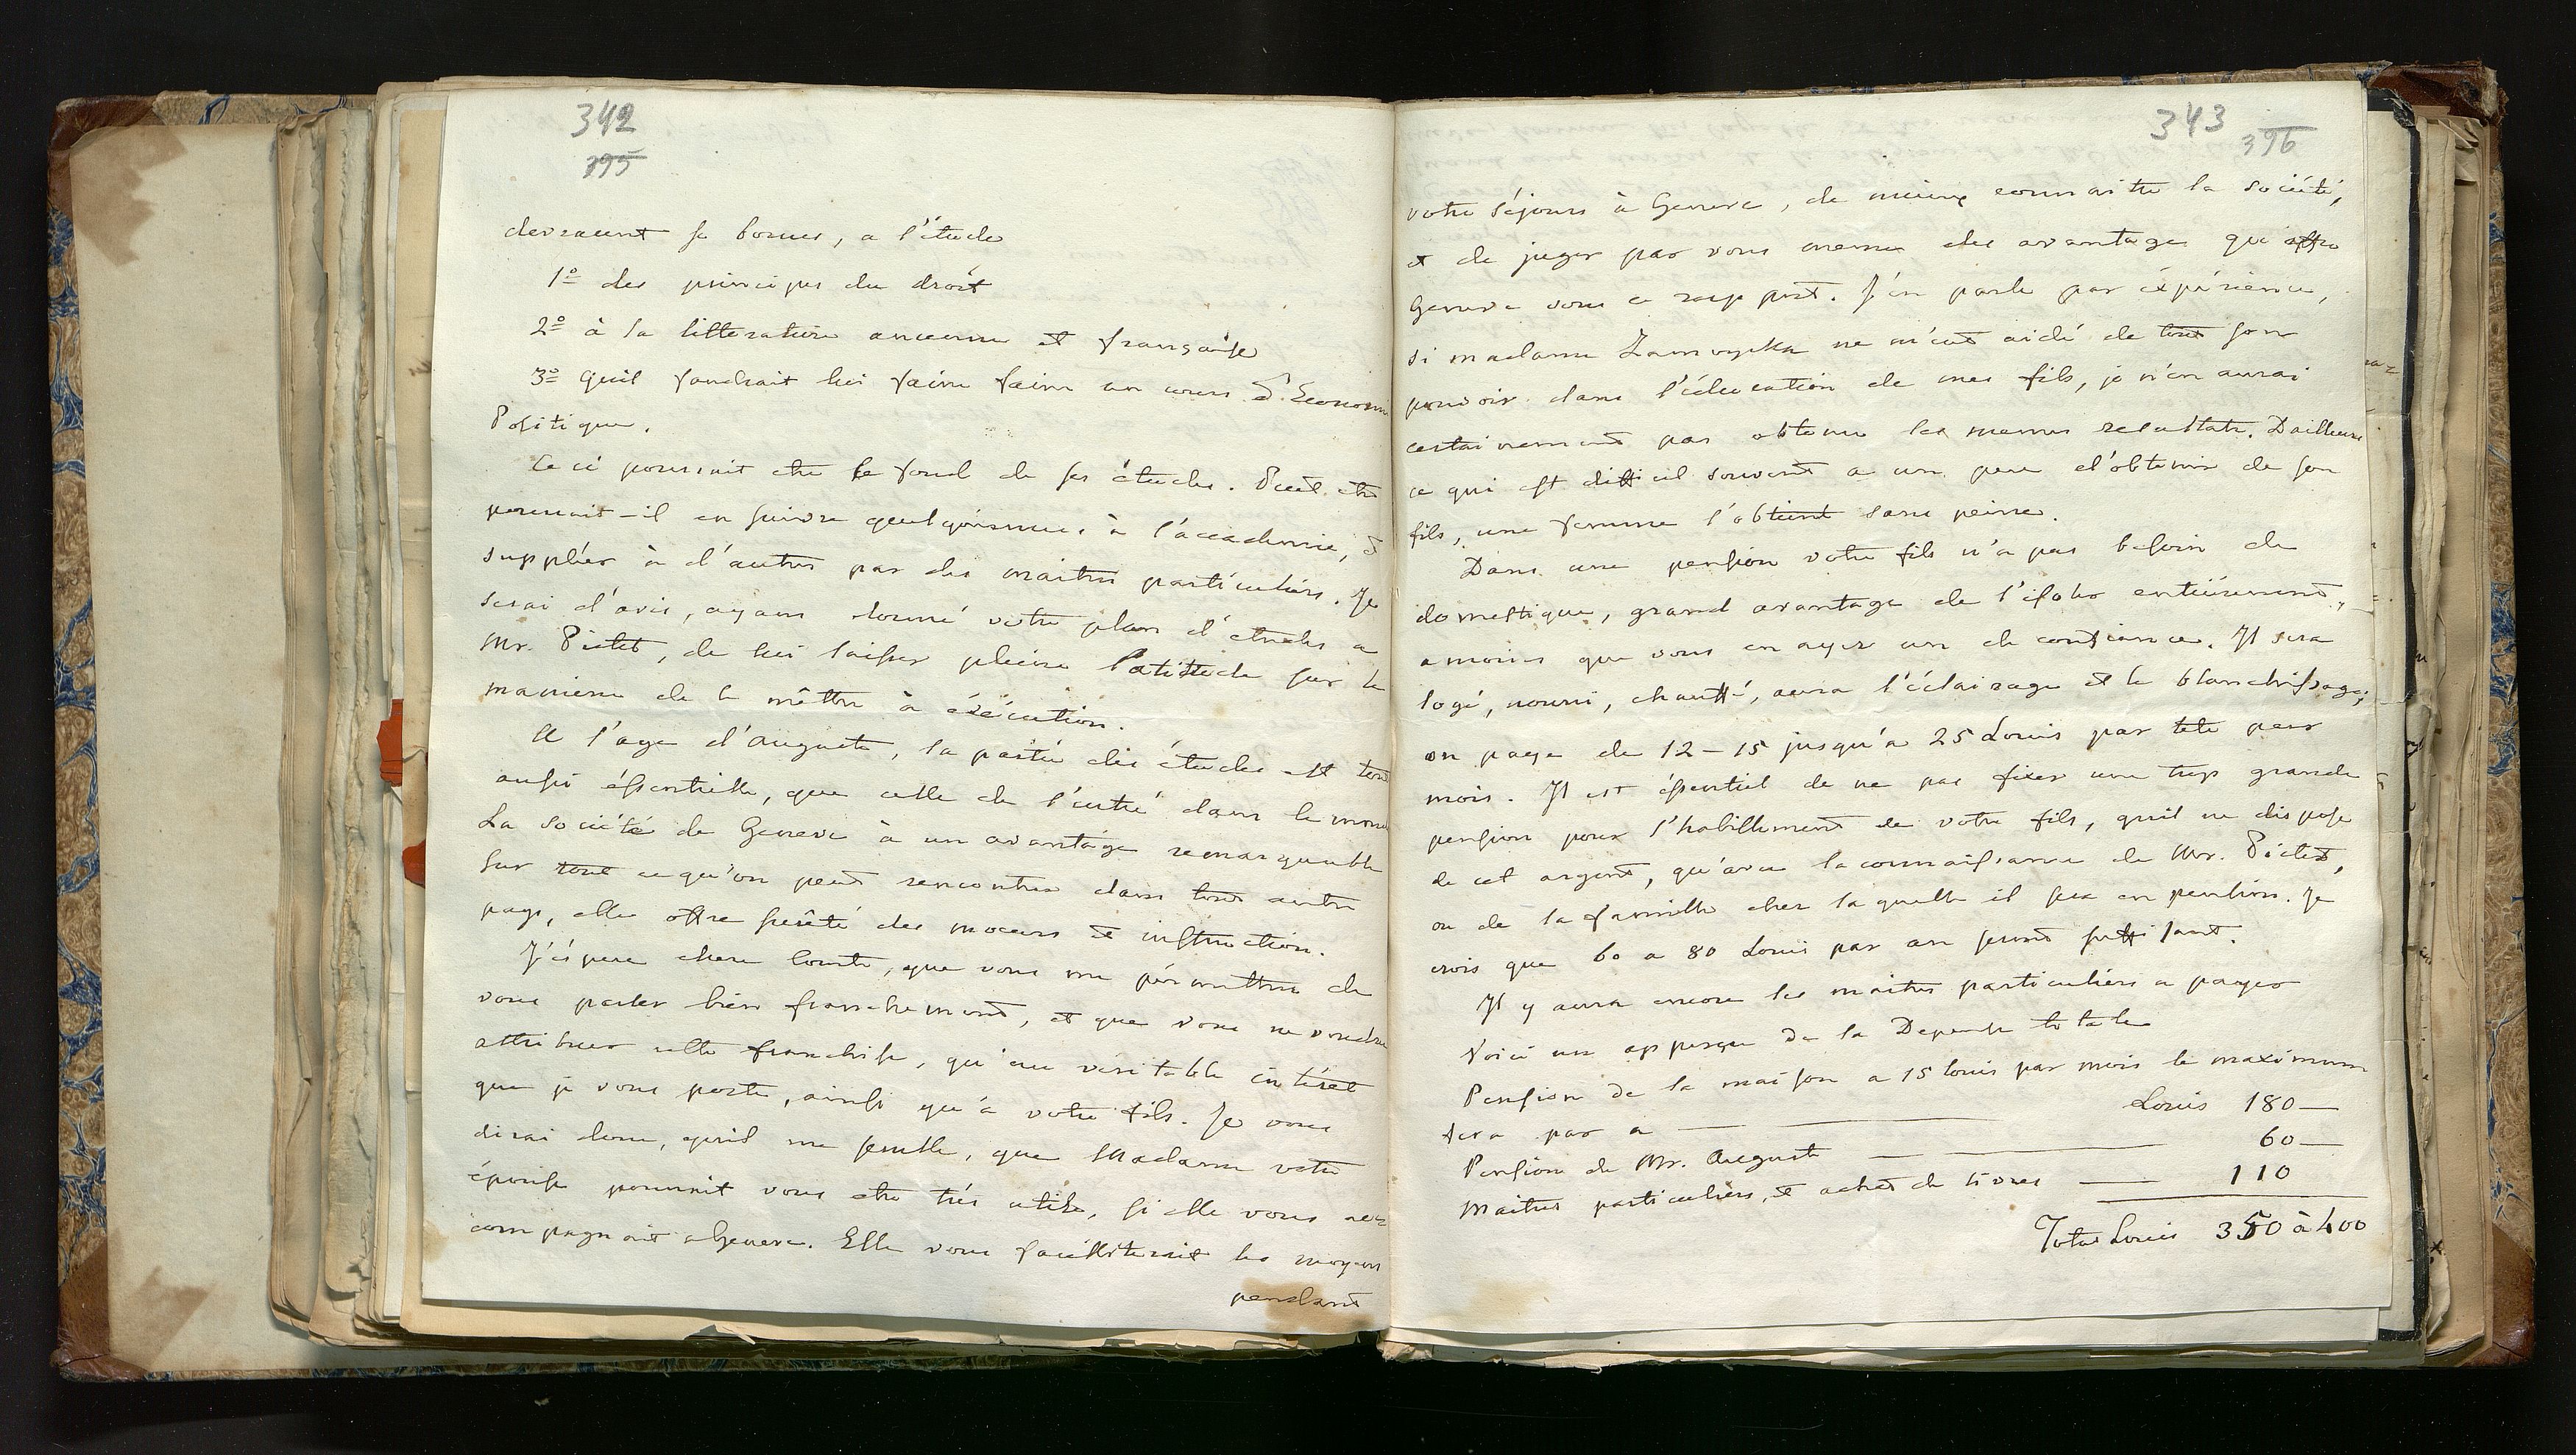 342
395
devraient se borner, a l'étude
1º des principes du droit
2º à la litterature ancienne et française
3º Quil faudrait lui faire faire un cours d'Economie
Politique.
Ce ci pourrait etre le fond de ses études. Peut etre
pourrait-il en suivre quelqu'unnes à l'académie, et
suppléer à d'autres par des maitres particuliers. Je
serai d'avis, ayans donné votre plan d'etudes a
Mr. Pictet, de lui laisser pleine latittude sur la
maniere de le mêttre à éxécution.
A l'age d'Auguste, la partie des études est tout
aussi éssentielle, que celle de l'entré dans le monde
La société de Geneve à un avantage remarquable
sur tout ce qu'on peut rencontrer dans tout autre
pays, elle offre sureté des moeurs et instruction.
J'éspere chere Comte, que vous me pérmettres de
vous parler bien franchement, et que vous ne voudres
attribuer cette franchise, qu'au véritable intéret
que je vous porte, ainsi qu'à votre fils. Je vous
dirai donc, qu'il me semble, que Madame votre
épouse pourrait vous etre trés utile, si elle vous ac=
compagnait a Geneve. Elle vous facilliterait les moyens
pendant
343
396
votre séjours à Geneve, de mieux connaitre la société,
et de juger par vous meme des avantages qu'offre
Geneve sous ce rapport. J'en parle par éxpérience,
si madame Zamoyska ne m'eut aidé de tout son
pouvoir dans l'éducation de mes fils, je n'en aurai
certainement pas obtenu les memes resultats. Dailleurs
ce qui est difficil souvent a un pere d'obtenir de son
fils, une femme l'obtient sans peine.
Dans une pension votre fils n'a pas besoin de
domestique, grand avantage de l'isoler entiérement,
amoins que vous en ayez un de confiance. Il sera
logé, nourri, chauffé, aura l'éclairage et le blanchissage;
on paye de 12-15 jusqu'a 25 Louis par tete par
mois. Il est éssentiel de ne pas fixer une trop grande
pension pour l'habillement de votre fils, quil ne dispose
de cet argent, qu'avec la connaissance de Mr. Pictet,
ou de la famille chez laquelle il sera en pension. Je
crois que 60 a 80 Louis par an seront suffisant.
Il y aura encore les maitres particuliers a payer
Voici un apperçu de la Depense totale
Pension de la maison a 15 louis par mois le maximum
fera par a — Louis 180 —
Pension de Mr. Auguste — 60 —
Maitres particuliers, et achat de livres — 110
Total Louis 350 à 400